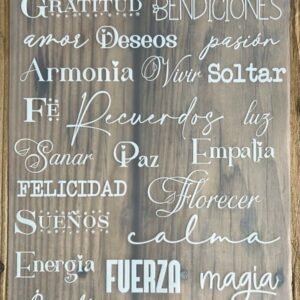 GRATITUD BENDICIONES
amor Deseos pasión
Armonia Vivir Soltar
FE Recuerdos luz
Sanar Paz Empatia
FELICIDAD Florecer
SUEÑOS calma
Energia FUERZA magia